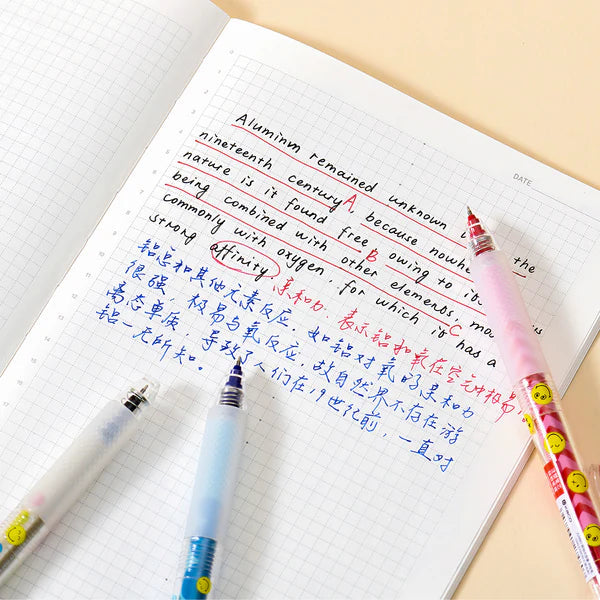 DATE
Aluminum remained unknown
nineteenth century A, because nowhe the
nature is it found free, B owing to its
being combined with other elemends, mo
commonly with oxygen, for which it has a C
strong affinity 亲和力. 表示铝和氧在空气中极易
铝总和其他元素反应. 如铝对氧的亲和力
很强, 极易与氧反应, 故自然界不存在游
离态单质. 导致了人们在19世纪前, 一直对
铝一无所知。